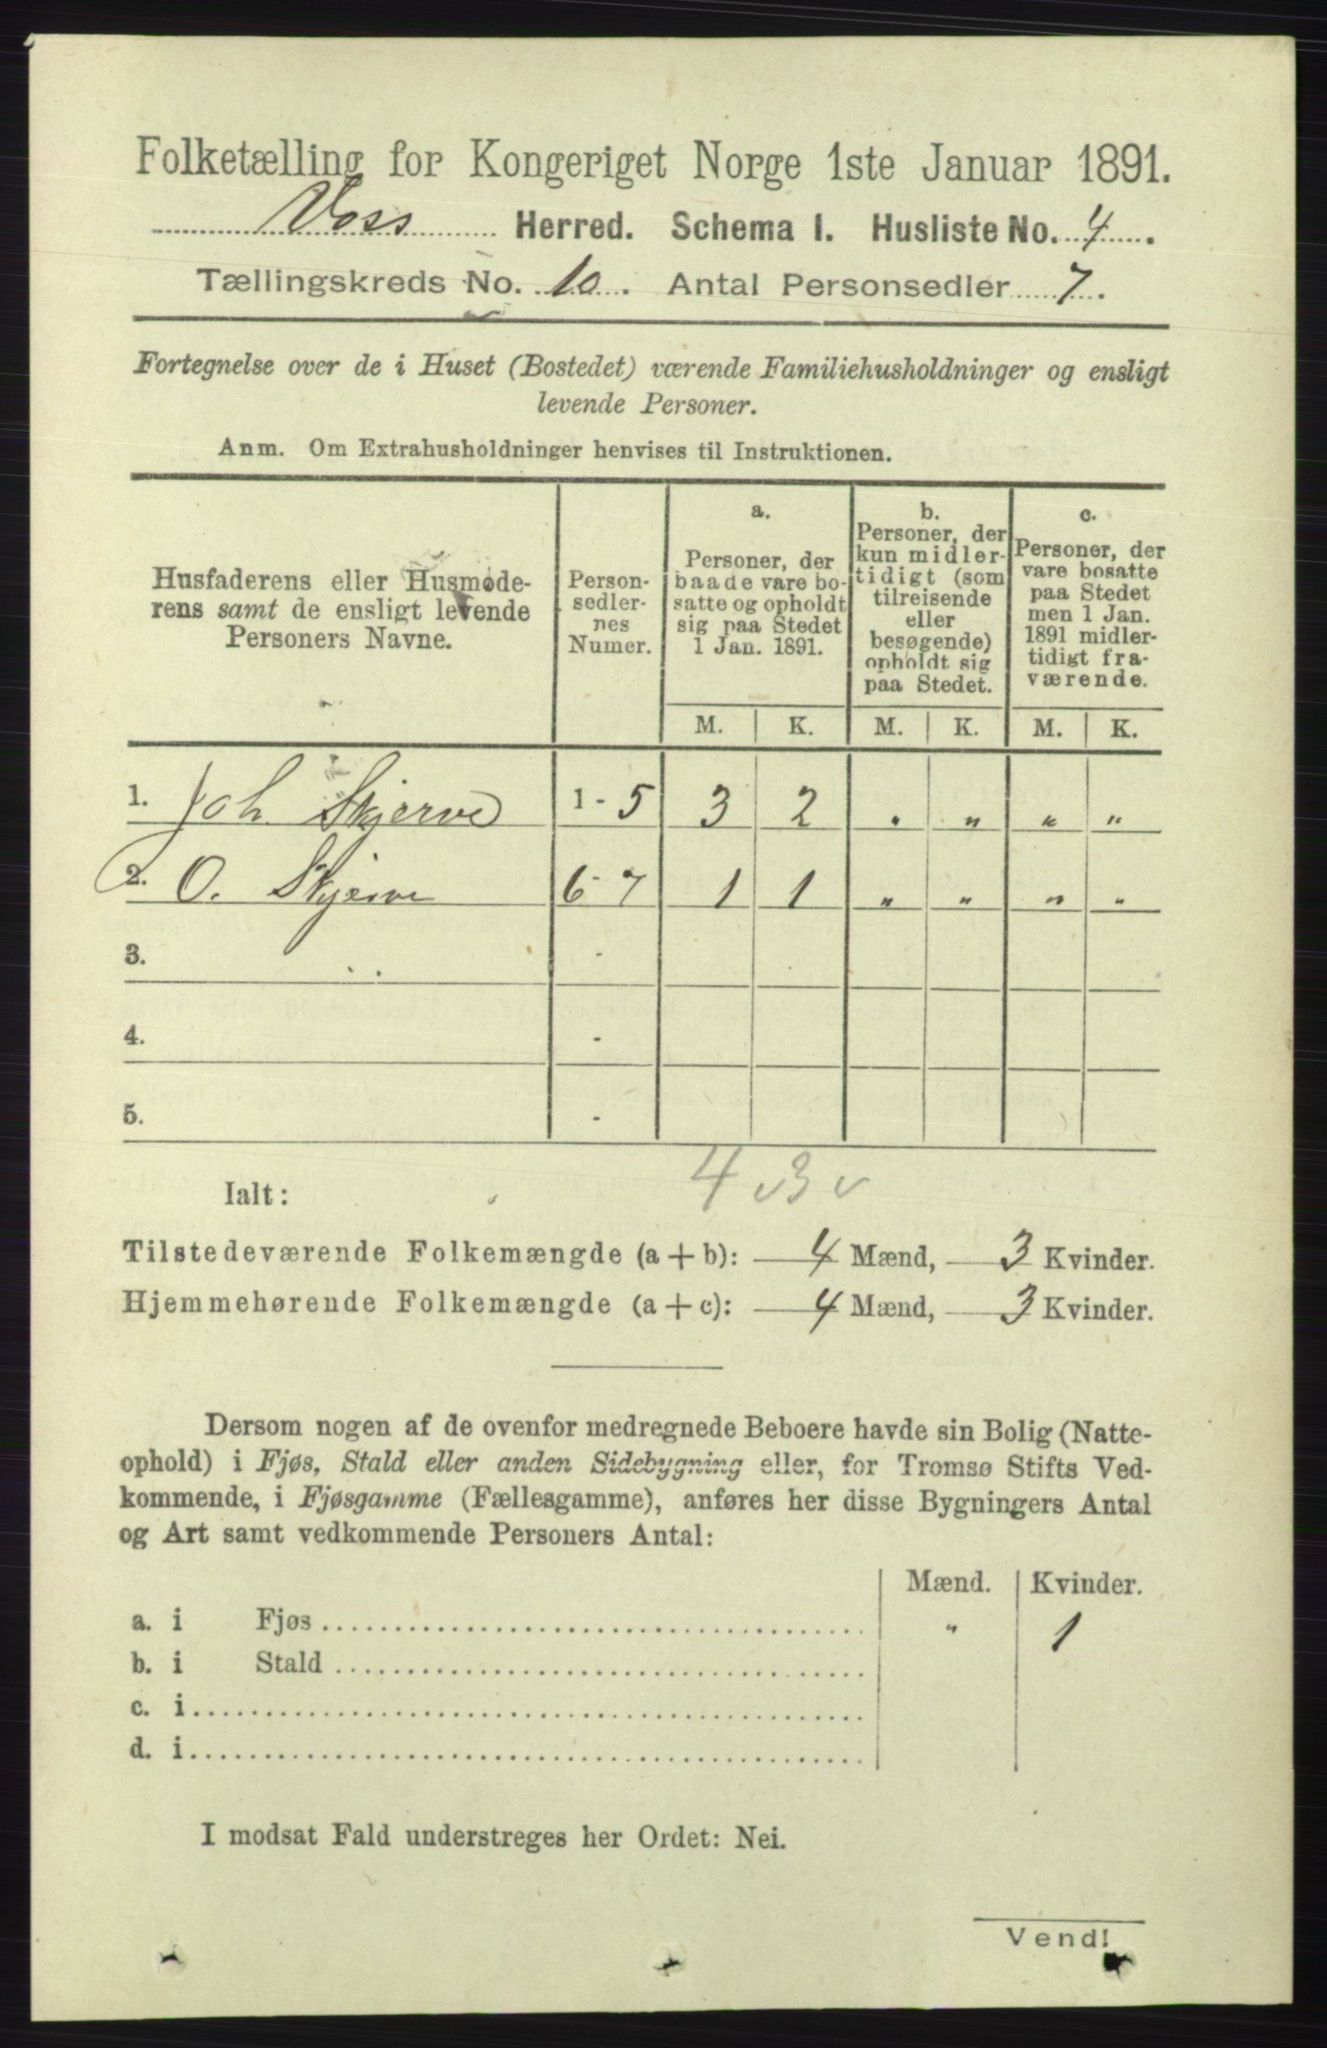 Folketælling for Kongeriget Norge 1ste Januar 1891.
Voss Herred. Schema I. Husliste No. 4.
Tællingskreds No. 10. Antal Personsedler 7.
Fortegnelse over de i Huset (Bostedet) værende Familiehusholdninger og ensligt
levende Personer.
Anm. Om Extrahusholdninger henvises til Instruktionen.
Husfaderens eller Husmøde-
rens samt de ensligt levende
Personers Navne.
Person-
sedler-
nes
Numer.
a.
Personer, der
baade vare bo-
satte og opholdt
sig paa Stedet
1 Jan. 1891.
b.
Personer, der
kun midler-
tidigt (som
tilreisende
eller
besøgende)
opholdt sig
paa Stedet.
c.
Personer, der
vare bosatte
paa Stedet
men 1 Jan.
1891 midler-
tidigt fra-
værende.
M. K. M. K. M. K.
1. Joh. Skjerve 1 - 5 3 2 " " " "
2. O. Skjerve 6 - 7 1 1 " " " "
3. -
4. -
5. -
4 v 3 v
Ialt:
Tilstedeværende Folkemængde (a + b): 4 Mænd, 3 Kvinder.
Hjemmehørende Folkemængde (a + c): 4 Mænd, 3 Kvinder.
Dersom nogen af de ovenfor medregnede Beboere havde sin Bolig (Natte-
ophold) i Fjøs, Stald eller anden Sidebygning eller, for Tromsø Stifts Ved-
kommende, i Fjøsgamme (Fællesgamme), anføres her disse Bygningers Antal
og Art samt vedkommende Personers Antal:
Mænd. Kvinder.
a. i Fjøs " 1
b. i Stald
c. i
d. i
I modsat Fald understreges her Ordet: Nei.
Vend!